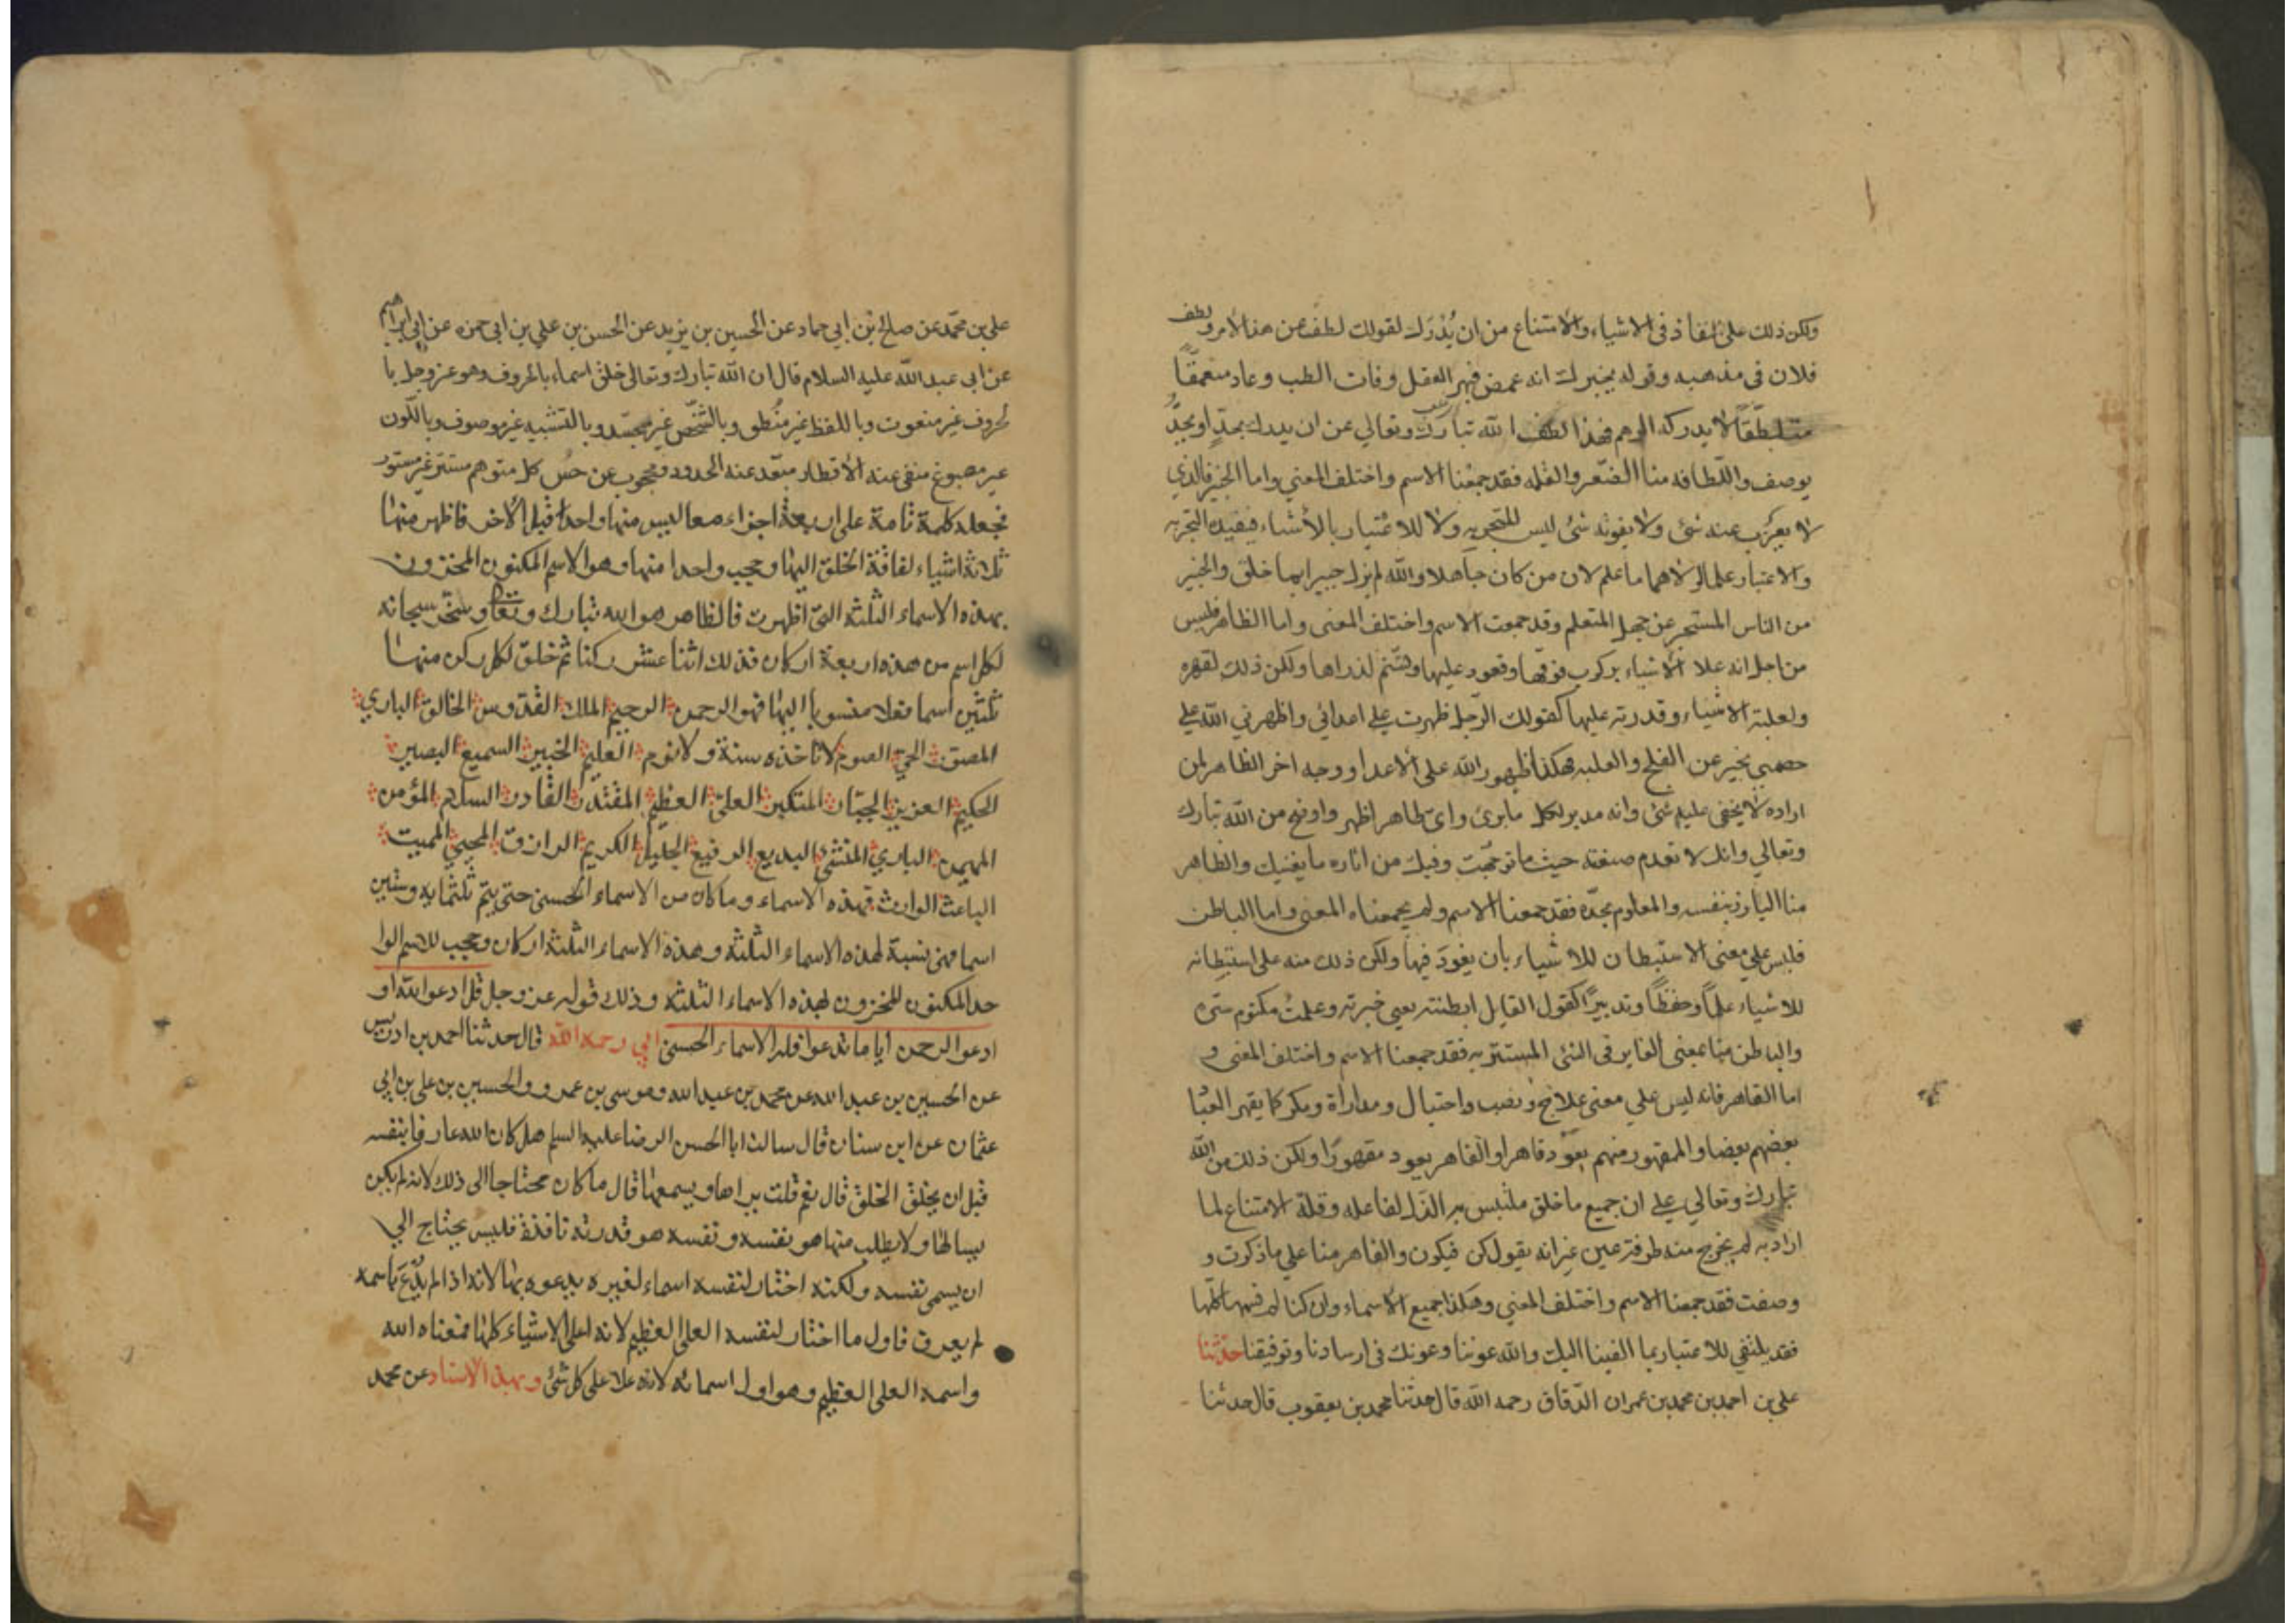 ولكن ذلك على النفاذ فى الاشياء والامتناع من ان يُدْرَك لقولك لطف عن هذا الامر ولطف
فلان فى مذهبه وقوله يخبرك انه غمض فبهر العقل وفات الطلب وعاد متعمقًا
متلطّفًا لا يدركه الوهم فهذا لطف الله تبارك وتعالي عن ان يدرك بحدّ او يحدّ
بوصف واللّطافه منا الصّغر والقله فقد جمعْنا الاسم واختلف المعني واما الخبير فالذي
لا يعزُب عنه شئ ولا يفوته شئ ليس للتجربه ولا للاعتبار بالأشياء فيفيده التجربه
والاعتبار علما لولاهما ما علم لان من كان جاهلا والله لم يزل خبيرا بما خلق والخبير
من الناس المستخبر عن جهل المتعلم وقد جمعت الاسم واختلف المعنى واما الظاهر فليس
من اجل انه علا الأشياء بركوب فوقها وقعود عليها وتسّنم لذراها ولكن ذلك لقهره
ولغلبته الاشياء وقدرته عليها كقولك الرّجل ظهرت علي اعدائي واظهرني الله علي
خصمي يخبر عن الفلج والغلبه فهكذا ظهور الله على الأعدا ووجه اخر الظاهر لمن
اراده لا يخفى عليه شئ وانه مدبر لكل ما برئ واىّ ظاهر اظهر واوضح من الله تبارك
وتعالي وانك لا تعدم صنعته حيث ما توجّهت وفيك من اثاره ما يغنيك والظاهر
منا البارز بنفسه والمعلوم بحدّه فقد جمعنا الاسم ولم يجمعناه المعنى واما الباطن
فليس علي معنى الاستبطان للاشياء بان يغور فيها ولكن ذلك منه على استبطانه
للاشياء علمًا وحفظًا وتدبيرًا كقول القايل ابطنته يعني خبرته وعلمتُ مكتوم سّره
والباطن منا بمعنى الغاير فى الشئ المستتر به فقد جمعنا الاسم واختلف المعنى و
اما القاهر فانه ليس علي معنى علاج ونصب واحتيال ومداراة ومكر كما يقهر العبا
بعضهم بعضا والمقهور منهم يعود قاهرا والقاهر يعود مقهورًا ولكن ذلك من الله
تبارك وتعالي علي ان جميع ما خلق ملتبس به الذل لفاعله وقلة الامتناع لما
اراد به لم يخرج منه طرفة عين غير انه يقول كن فيكون والقاهر منا علي ما ذكرت و
وصفت فقد جمعنا الاسم واختلف المعني وهكذا جميع الأسماء وان كنا لم كلّها
فقد يكتفي للاعتبار بما القينا اليك والله عوننا وعونك فى ارسادنا وتوفيقنا حدّثنا
علي بن احمد بن محمد بن عمران الدّقاق رحمه الله قال حدثنا محمد بن يعقوب قال حدثنا
علي بن محمّد عن صالح بْن ابي حماد عن الحسين بن يزيد عن الحسن بن علي بن ابي حمزه عن ابي ابراهيم
عن ابي عبد الله عليه السلام قال ان الله تبارك وتعالى خلق اسماء بالحروف وهو عز وجل با
لحروف غير منعوت وباللفظ غير منُطق وبالشّخص غير مجسّد وبالتشبيه غير موصوف وباللّون
غير مصبوغ منفى عنه الأقطار مبعّد عنه الحدود ومحجوب عن حسّ كل متوهم مستتر غير مستور
فجعله كلمة تامة على اربعة اجزاء معا ليس منها واحد قبل الأخر فاظهر منها
ثلاثة اشياء لفاقة الخلق اليها وحجب واحدا منها وهو الاسم المكنون المخزون
بهذه الاسماء الثلثه التي اظهرت فالظاهر هو الله تبارك وتعالى وسخر سبحانه
لكل اسم من هذه اربعة اركان فذلك اثنا عشر ركنا ثم خلق لكل ركن منها
ثلثين اسما فعلا منسوبا اليها فهو الرحمن الرحيم الملك القدوس الخالق الباري
المصور الحي القيوم لا تاخذه سنة ولا نوم العليم الخبير السميع البصير
الحكيم العزيز الجبّار المتكبر العلىّ العظيم المقتدر القادر السلام المؤمن
المهيمن الباري المنشي البديع الرفيع الجليل الكريم الرازق المحيي المميت
الباعث الوارث فهذه الاسماء وما كان من الاسماء الحسنى حتى يتم ثلثمايه وستين
اسما فهى نسبة لهذه الاسماء الثلثه وهذه الاسماء الثلثة اركان وحجب للاسم الوا
حد المكنون المخزون بهذه الاسماء الثلثه وذلك قوله عز وجل قل ادعوا الله او
ادعوا الرحمن ايا ما تدعوا فله الاسماء الحسنى ابي رحمه الله قال حدثنا احمد بن ادريس
عن الحسين بن عبد الله عن محمد بن عبد الله وموسى بن عمرو والحسين بن على بن ابي
عثمان عن ابن سنان قال سالت ابا الحسن الرضا عليه السلم هل كان الله عارفا بنفسه
قبل ان يخلق الخلق قال نعم قلت يراها ويسمعها قال ما كان محتاجا الى ذلك لانه لم يكن
يسالها ولا يطلب منها هو نفسه ونفسه هو قدرته نافذة فليس يحتاج الي
ان يسمى نفسه ولكنه اختار لنفسه اسماء لغيره يدعوه بها لانه اذا لم يُدْعَ باسمه
لم يعرف فاول ما اختار لنفسه العلى العظيم لانه اعلى الاشياء كلها فمعناه الله
واسمه العلى العظيم وهو اول اسمائه لانه علا على كل شئ وبهذا الاسناد عن محمد